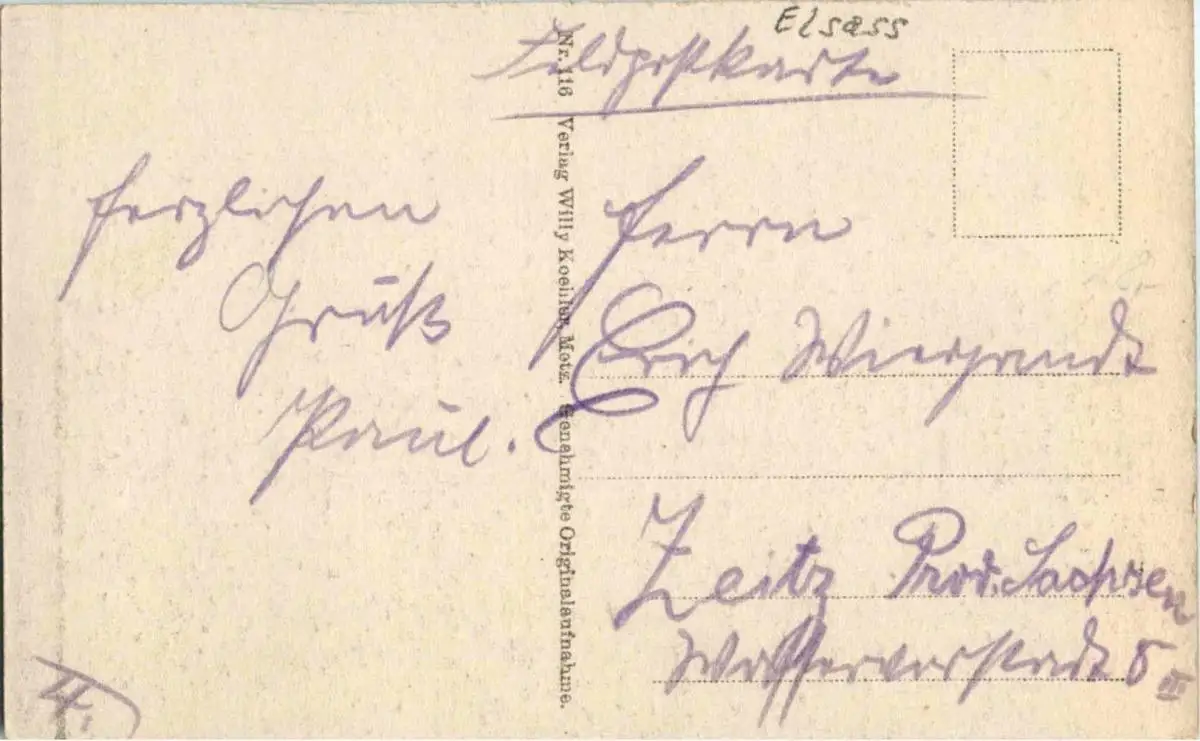 Elsass
Feldpostkarte
Herzlichen
Gruß
Paul.
Nr. 116 Verlag Willy Koehler, Metz. Genehmigte Originalaufnahme.
Herrn
Erich Wiegandt
Zeitz Prov. Sachsen
Wasservorstadt 5 III